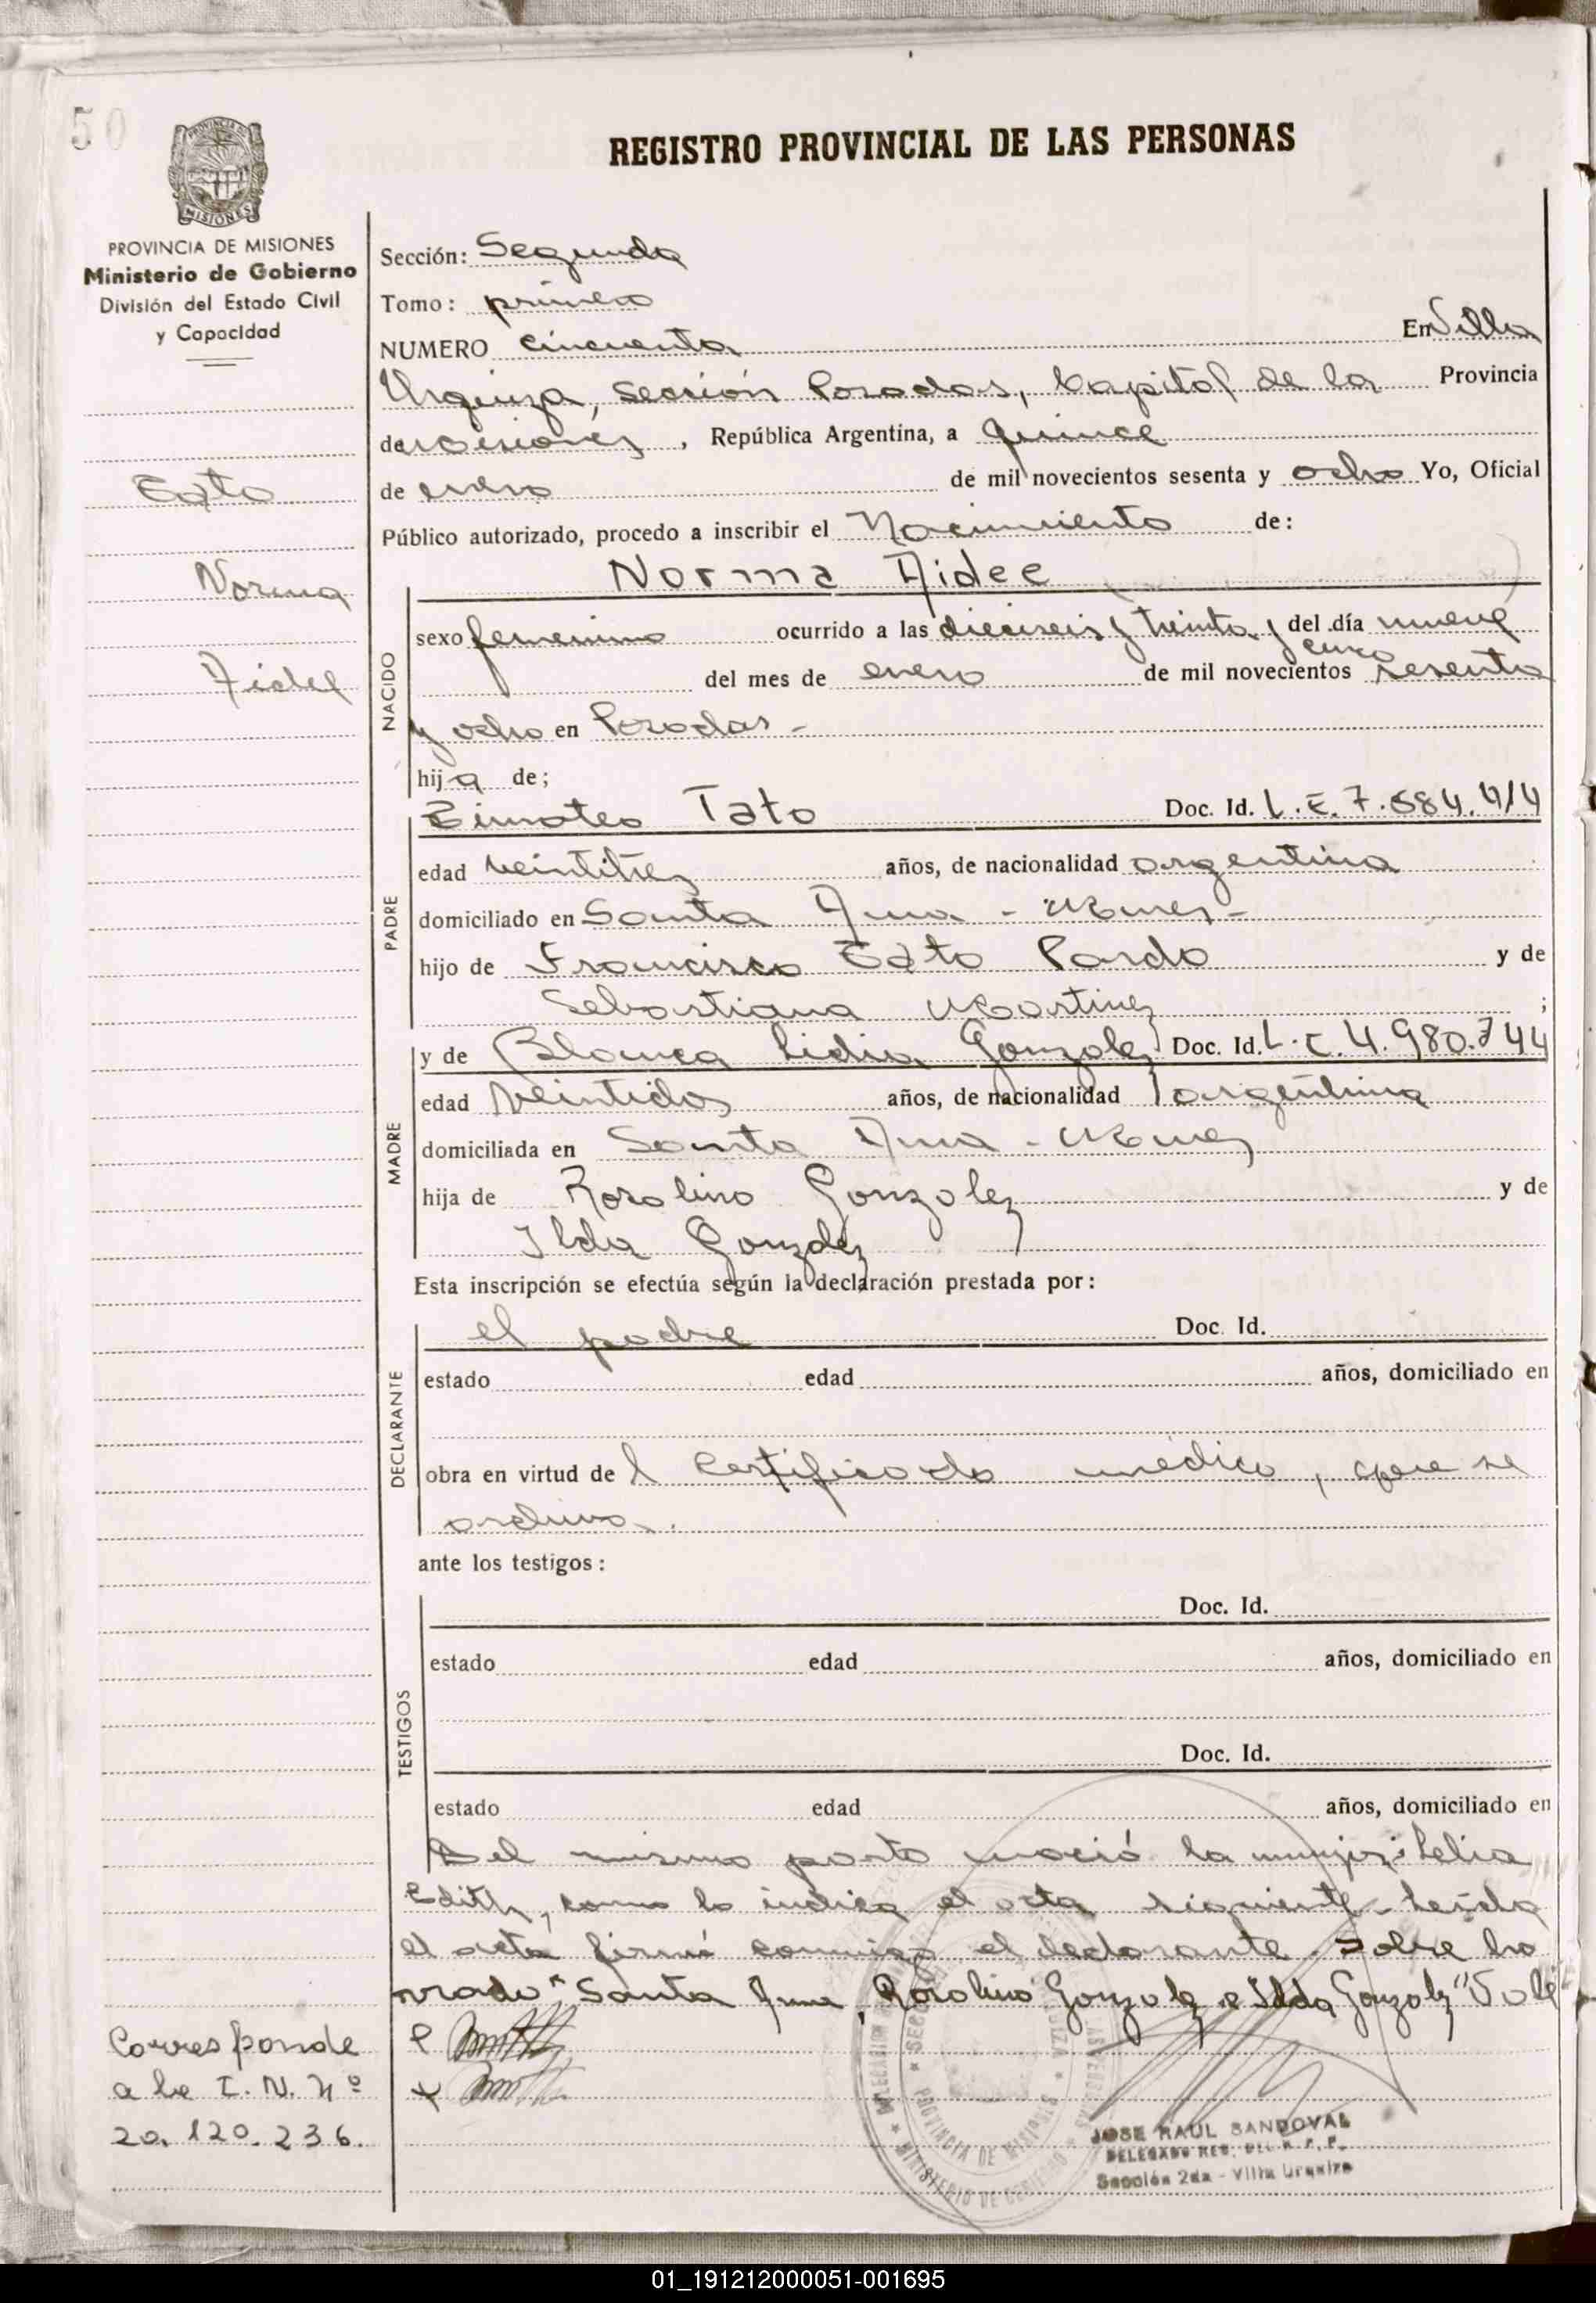 50
REGISTRO PROVINCIAL DE LAS PERSONAS
PROVINCIA DE MISIONES
Ministerio de Gobierno
División del Estado Civil
y Capacidad
Tato
Norma
Aidee
Sección: Segunda
Tomo: primero
NUMERO cincuenta En Villa
Urquiza, Sección Posadas, Capital de la Provincia
de Misiones, República Argentina, a quince
de enero de mil novecientos sesenta y ocho Yo, Oficial
Público autorizado, procedo a inscribir el Nacimiento de:
NACIDO
Norma Aidee
sexo femenino ocurrido a las dieciseis y treinta y cinco del día nueve
del mes de enero de mil novecientos sesenta
y ocho en Posadas -
hija de;
PADRE
Timoteo Tato Doc. Id. L.E. 7.684.414
edad veintitres años, de nacionalidad argentina
domiciliado en Santa Ana - Mnes -
hijo de Francisco Tato Pardo y de
Sebastiana Martinez ;
MADRE
y de Blanca Lidia Gonzalez Doc. Id. L.C. 4.980.744
edad veintidos años, de nacionalidad argentina
domiciliada en Santa Ana - Mnes
hija de Rosalino Gonzalez y de
Ilda Gonzalez
Esta inscripción se efectúa según la declaración prestada por:
DECLARANTE
el padre Doc. Id.
estado edad años, domiciliado en
obra en virtud del certificado médico, que se
archiva.
ante los testigos:
TESTIGOS
Doc. Id.
estado edad años, domiciliado en
Doc. Id.
estado edad años, domiciliado en
Del mismo parto nació la Lelia
Edith, como lo indica el acta siguiente - Leída
el acta firmó conmigo el declarante. Sobre bo
rrado "Santa Ana, Rosalino Gonzalez e Ilda Gonzalez" Vale
Corresponde
a la I. N. Nº
20.120.236.
PROVINCIA DE MISIONES
MINISTERIO DE GOBIERNO
JOSE RAUL SANDOVAL
DELEGADO REG. DEL R. P. P.
Sección 2da - Villa Urquiza
01_191212000051-001695